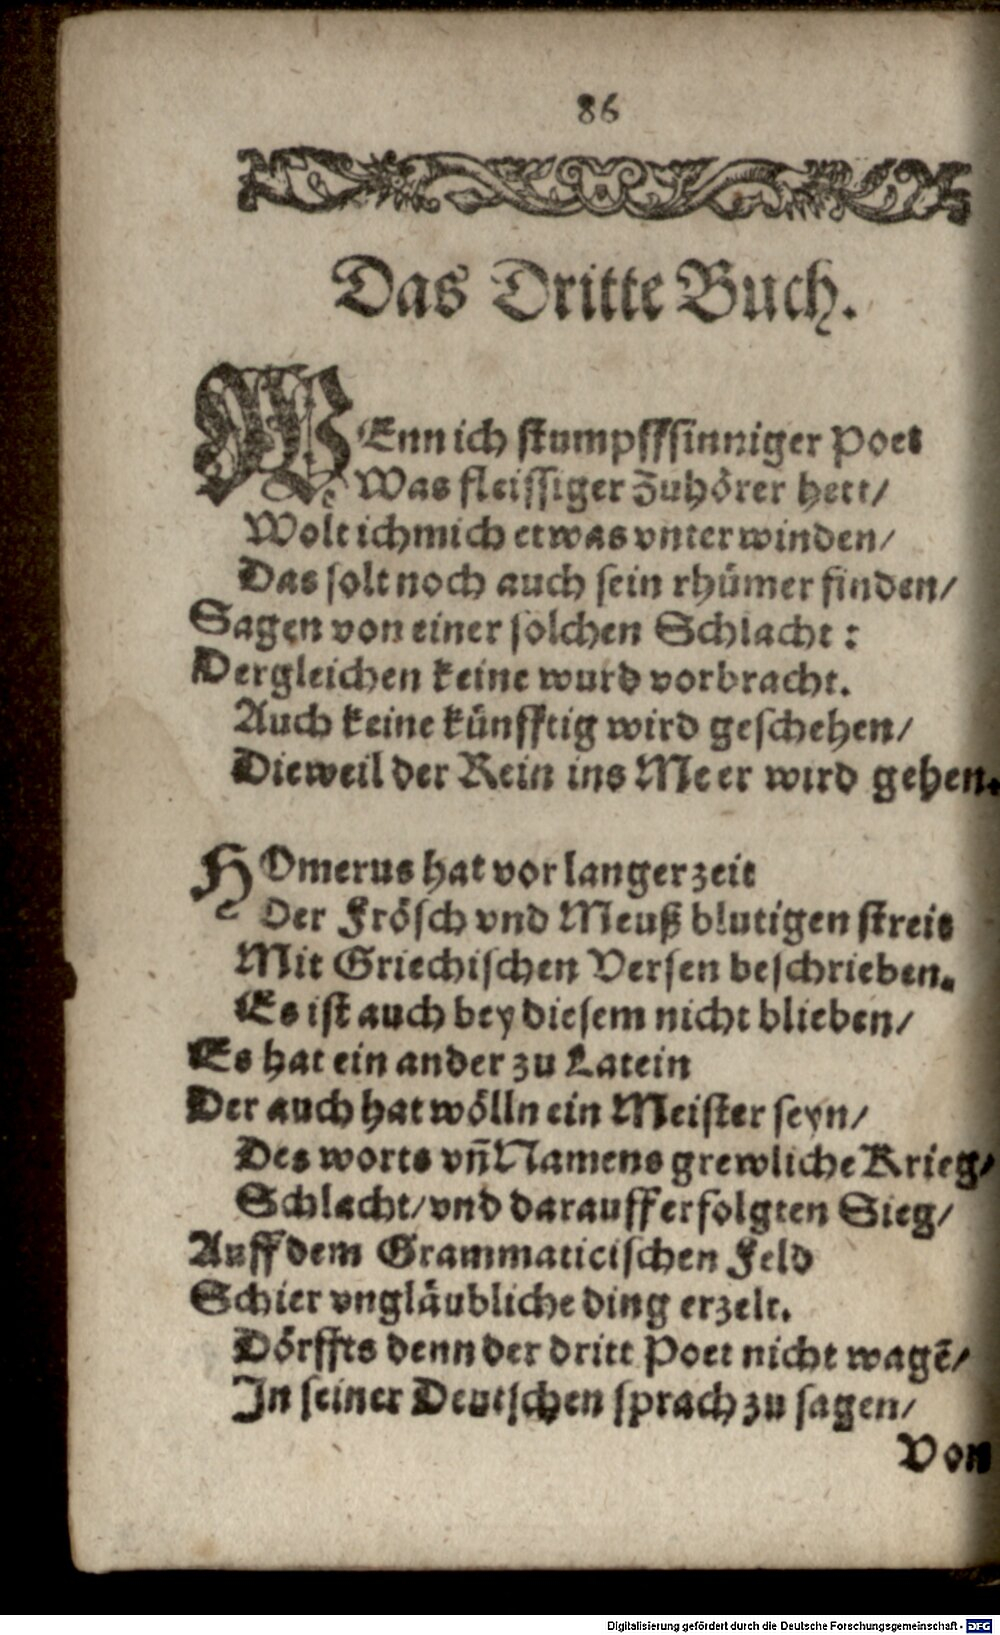 86
Das Dritte Buch.
WEnn ich stumpffsinniger Poet
Was fleissiger Zuhörer hett/
Wolt ich mich etwas vnterwinden/
Das solt noch auch sein rhümer finden/
Sagen von einer solchen Schlacht:
Dergleichen keine wurd vorbracht.
Auch keine künfftig wird geschehen/
Dieweil der Rein ins Meer wird gehen.
HOmerus hat vor langer zeit
Der Frösch vnd Meuß blutigen streit
Mit Griechischen Versen beschrieben.
Es ist auch bey diesem nicht blieben/
Es hat ein ander zu Latein
Der auch hat wölln ein Meister seyn/
Des worts vñ Namens grewliche Krieg/
Schlacht/ vnd darauff erfolgten Sieg/
Auff dem Grammaticischen Feld
Schier vngläubliche ding erzelt.
Dörffts denn der dritt Poet nicht wagẽ/
In seiner Deutschen sprach zu sagen/
Von
Digitalisierung gefördert durch die Deutsche Forschungsgemeinschaft - DFG